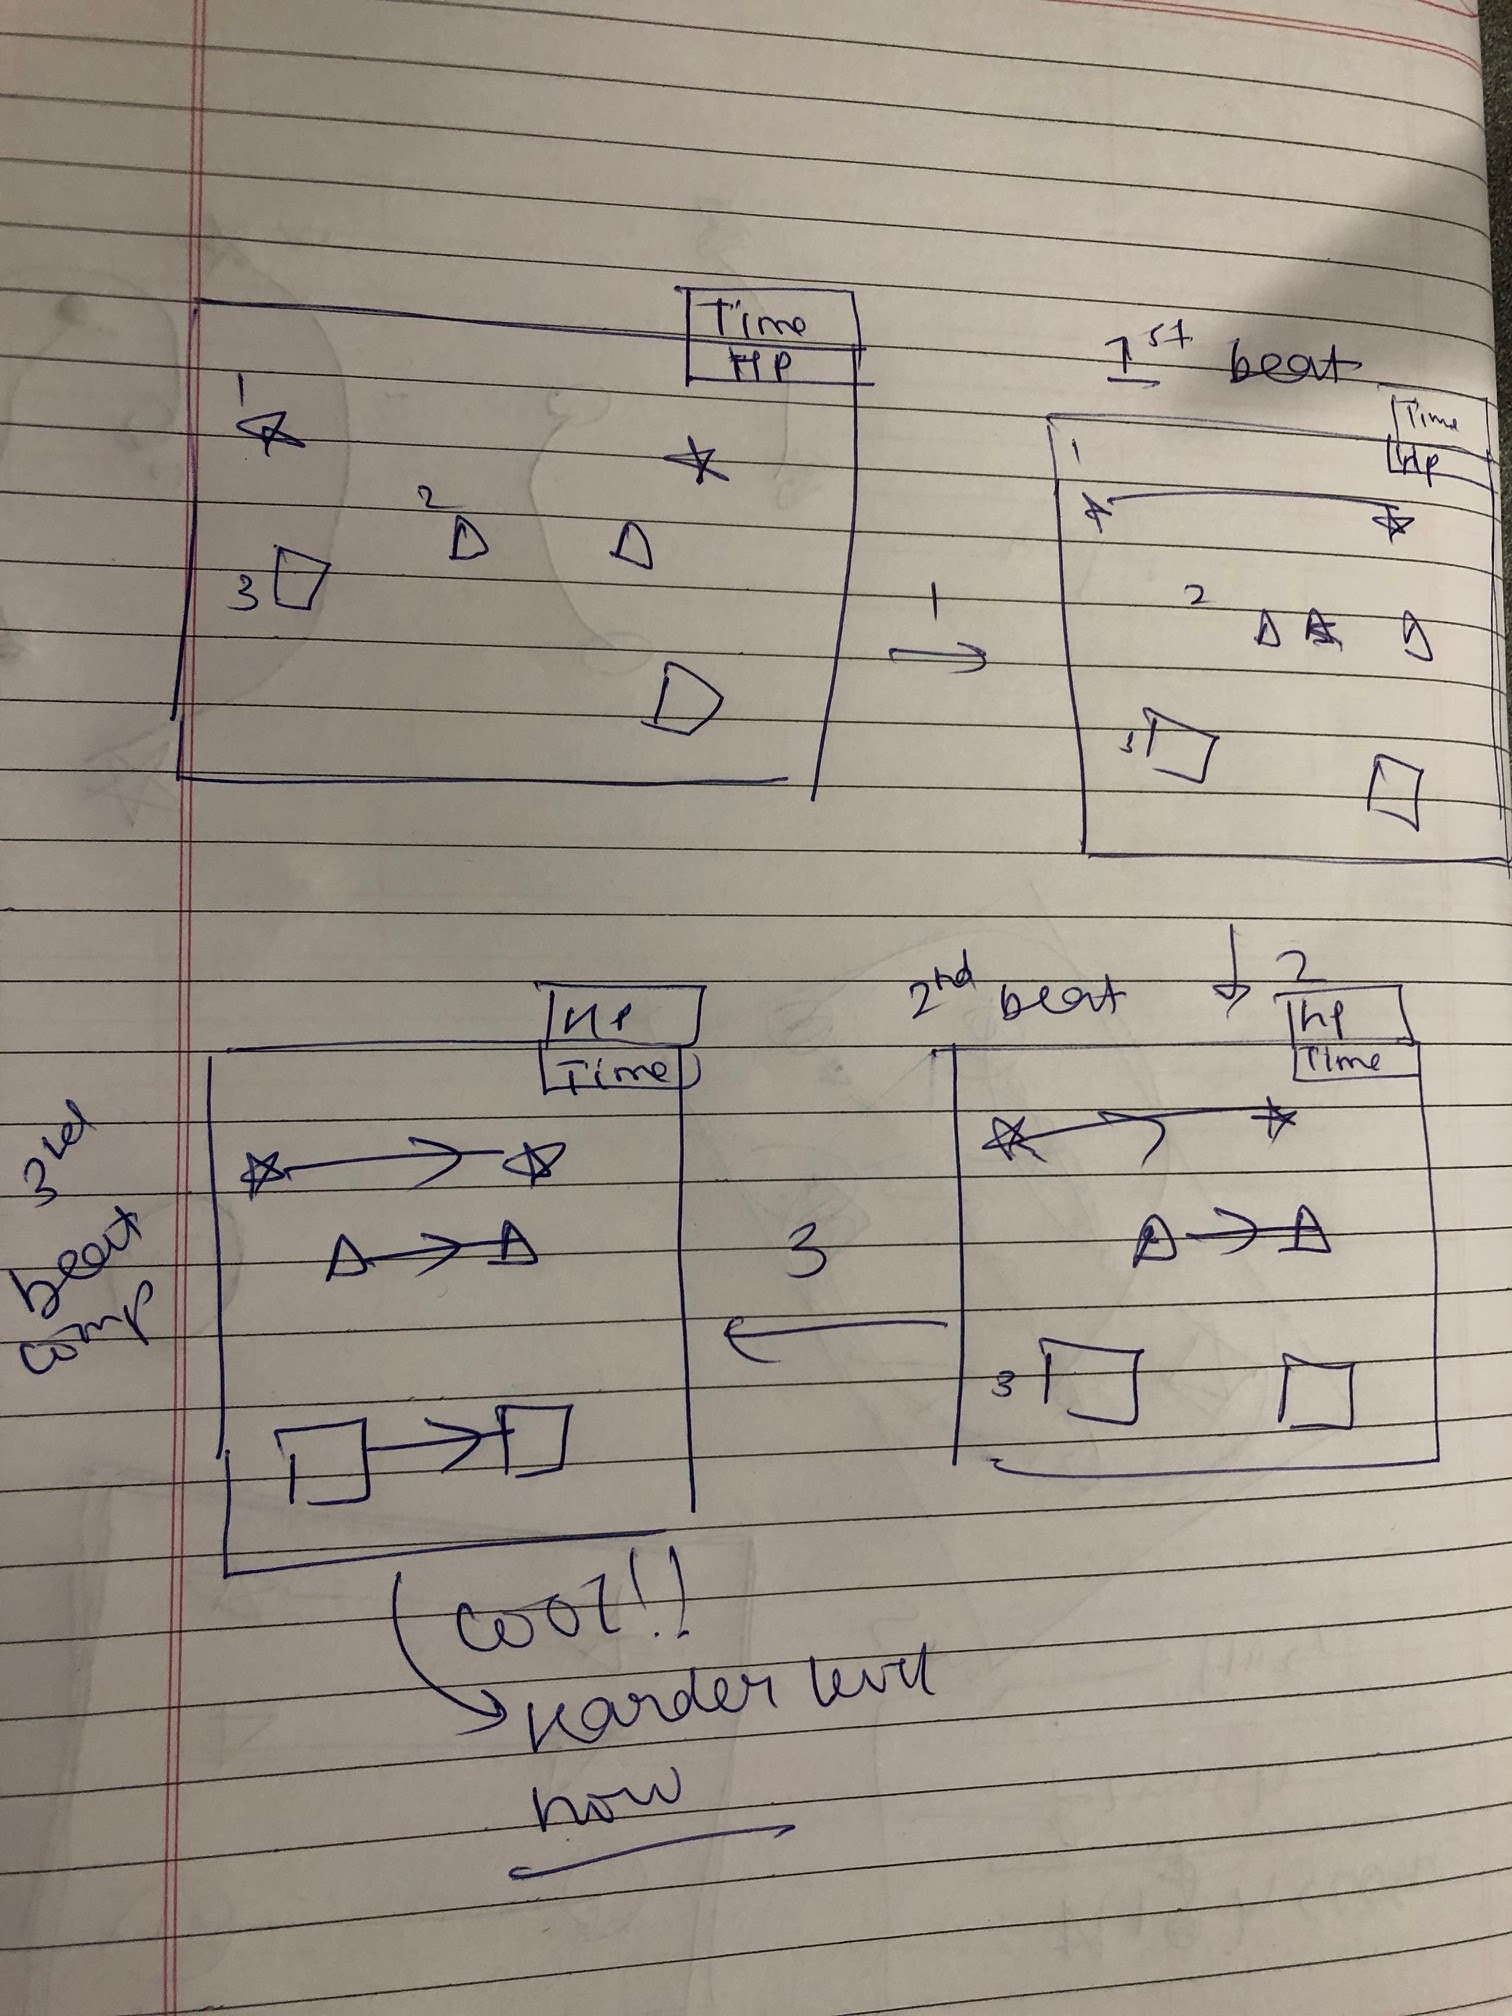 Time
HP
1
2
3
1
1st beat
Time
HP
1
2
3
2nd beat
2
HP
Time
3
3
HP
Time
3rd
beat
comp
cool!!
Harder level
now